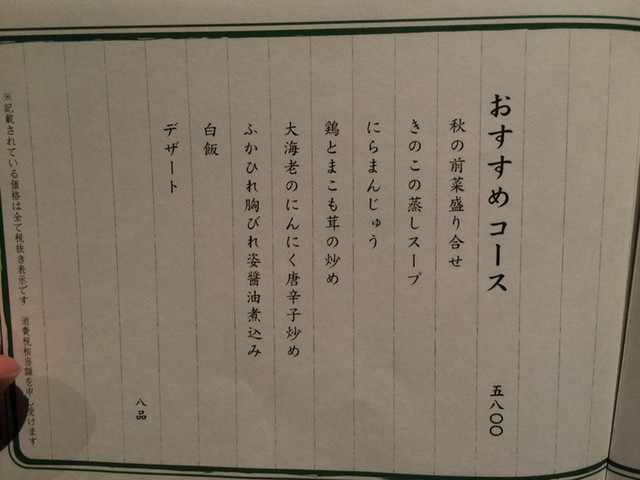 おすすめコース 五八〇〇
秋の前菜盛り合せ
きのこの蒸しスープ
にらまんじゅう
鶏とまこも茸の炒め
大海老のにんにく唐辛子炒め
ふかひれ胸びれ姿醤油煮込み
白飯
デザート
八品
※記載されている価格は全て税抜き表示です 消費税相当額を申し受けます